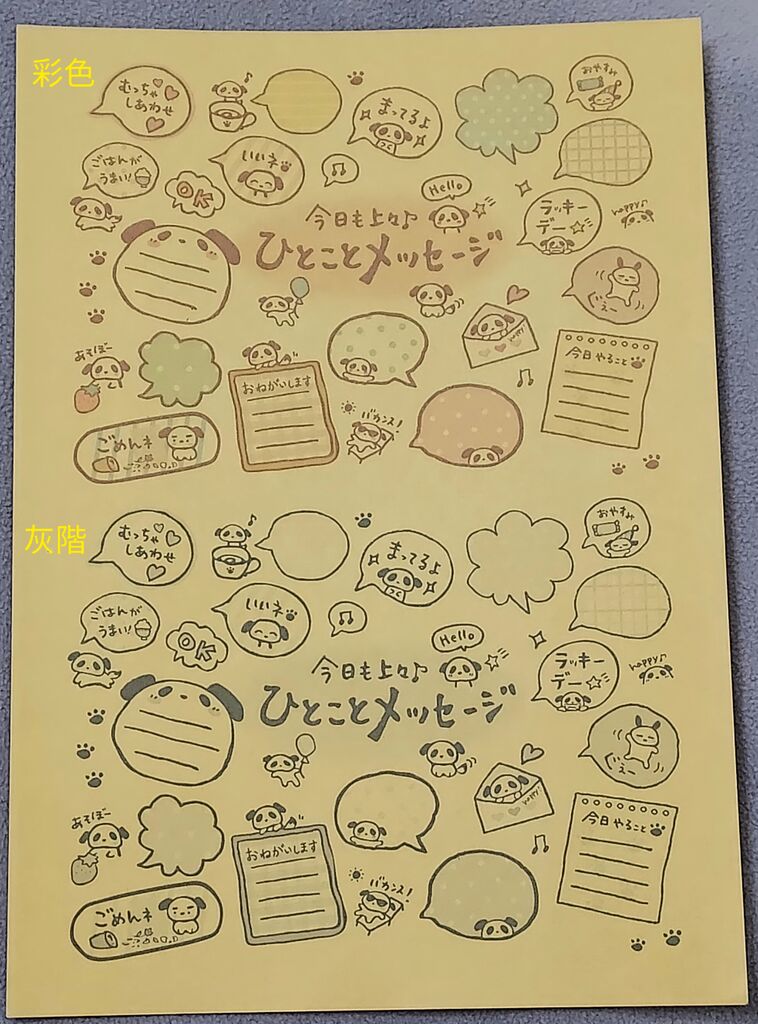 彩色
むっちゃ
しあわせ
まってるよ
つく
おやすみ
ごはんが
うまい!
いいネ
OK
Hello
ラッキー
デー
happy♪
今日も上々♪
ひとことメッセージ
ぐえー
happy
今日やること
あそぼー
おねがいします
バカンス!
ごめんネ
灰階
むっちゃ
しあわせ
まってるよ
つく
おやすみ
ごはんが
うまい!
いいネ
OK
Hello
ラッキー
デー
happy♪
今日も上々♪
ひとことメッセージ
ぐえー
happy!
今日やること
あそぼー
おねがいします
バカンス!
ごめんネ